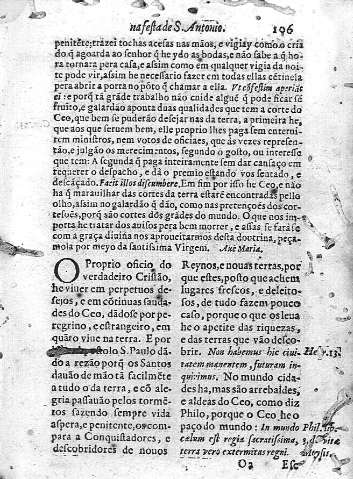 na festa de S. Antonio. 196
penitẽte; trazei tochas acesas nas mãos, e vigiay como o cria
do, q̃ agoarda ao senhor q̃ he ydo as bodas, e não sabe a q̃ ho
ra tornara pera casa, e assim como em qualquer vigia da noi
te pode vir, assim he necessario fazer em todas ellas cẽtinela
pera abrir a porta no põto q̃ chamar a ella. Vt cõfestim aperiãt
ei: e porq̃ tã grãde trabalho não cuide alguẽ q̃ pode ficar sẽ
fruito, e galardão aponta duas qualidades que tem a corte do
Ceo, que bem se puderão desejar nas da terra, a primeira he,
que aos que seruem bem, elle proprio lhes paga sem enterui-
rem ministros, nem votos de oficiaes, que ás vezes represen-
tão, e julgão os merecimentos, segundo o gosto, ou interesse
que tem: A segunda q̃ paga inteiramente sem dar cansaço em
requerer o despacho, e dà o premio estando vos sentado, e
descãçado. Facit illos discumbere, Em fim por isso he Ceo, e não
ha q̃ marauilhar das cortes da terra estarẽ encontradas pello
olho, assim no galardão q̃ dão, como nas pretenções dos cor-
tesoẽs, porq̃ são cortes dos grãdes do mundo. O que nos im-
porta he tratar dos auisos pera bem morrer, e assas se farà se
com a graça diuina nos aproueitarmos desta doutrina, peça-
mola por meyo da santissima Virgem. Aue Maria.
O Proprio oficio do
verdadeiro Cristão,
he viuer em perpetuos de
sejos, e em cõtinuas sauda
des do Ceo, dãdose por pe
regrino, e estrangeiro, em
quãto viue na terra. E por
stolo S. Paulo dã
do a rezão porq̃ os Santos
dauão de mão tã facilmẽte
a tudo o da terra, e cõ ale-
gria passauão pelos tormẽ-
tos fazendo sempre vida
aspera, e penitente, os com-
para a Conquistadores, e
descobridores de nouos
Reynos, e nouas terras, por
que estes, posto que achem
lugares frescos, e deleito-
sos, de tudo fazem pouco
caso, porque o que os leua
he o apetite das riquezas,
e das terras que vão desco-
brir. Non habemus hic ciui-
tatem manentem, futuram in-
quirimus. No mundo cida-
des ha, mas são arrebaldes,
e aldeas do Ceo, como diz
Philo, porque o Ceo he o
paço do mundo: In mundo
cælum est regia sacratissima,
terra vero extermitas regni.
He. 13.
Phil. lib.
3. de vita
Moysis
Oa Esc